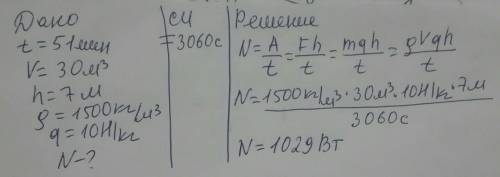 Дано
t = 51 мин
V = 30 м³
h = 7 м
ρ = 1500 кг/м³
g = 10 Н/кг
N - ?
СИ
= 3060 с
Решение
N = A/t = Fh/t = mgh/t = ρVgh/t
N = 1500 кг/м³ · 30 м³ · 10 Н/кг · 7 м
3060 с
N = 1029 Вт